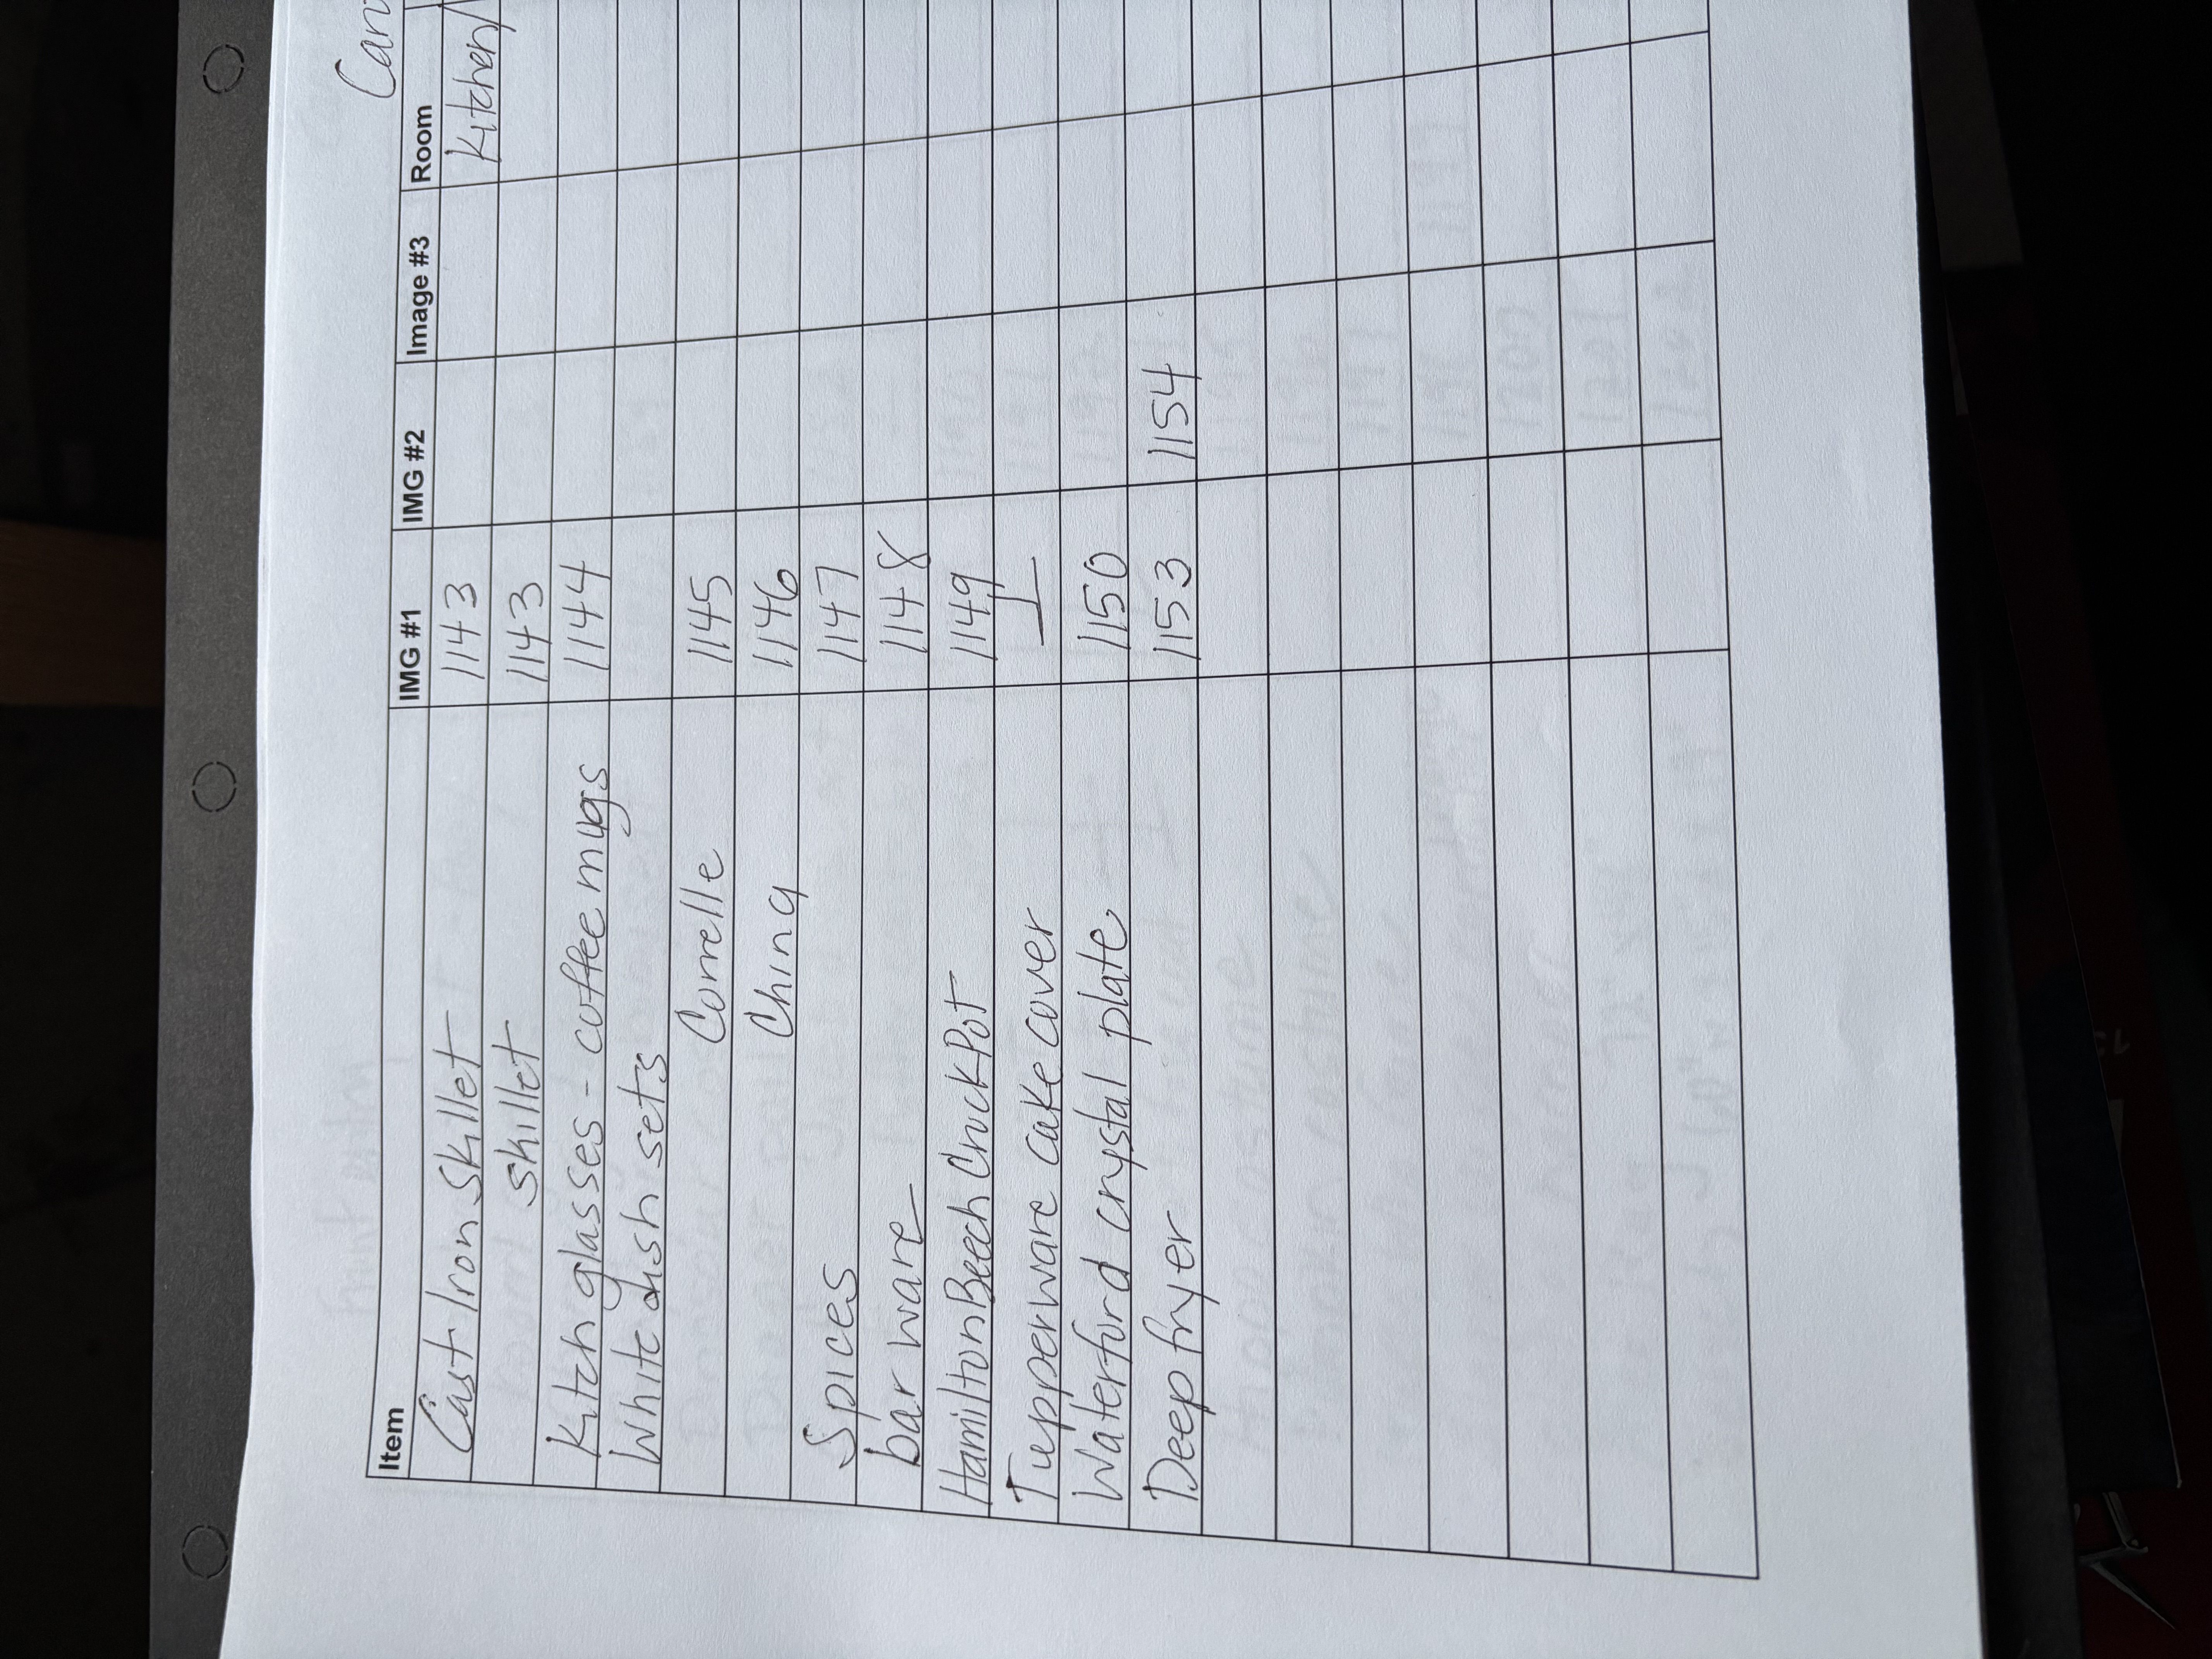 Can
Item IMG #1 IMG #2 Image #3 Room
Cast Iron Skillet 1143 Kitchen/
skillet 1143
Kitch glasses - coffee mugs 1144
White dish sets
Correlle 1145
China 1146
Spices 1147
barware 1148
Hamilton Beech CruckPot 1149
Tupperware cake cover
Waterford crystal plate 1150
Deep fryer 1153 1154